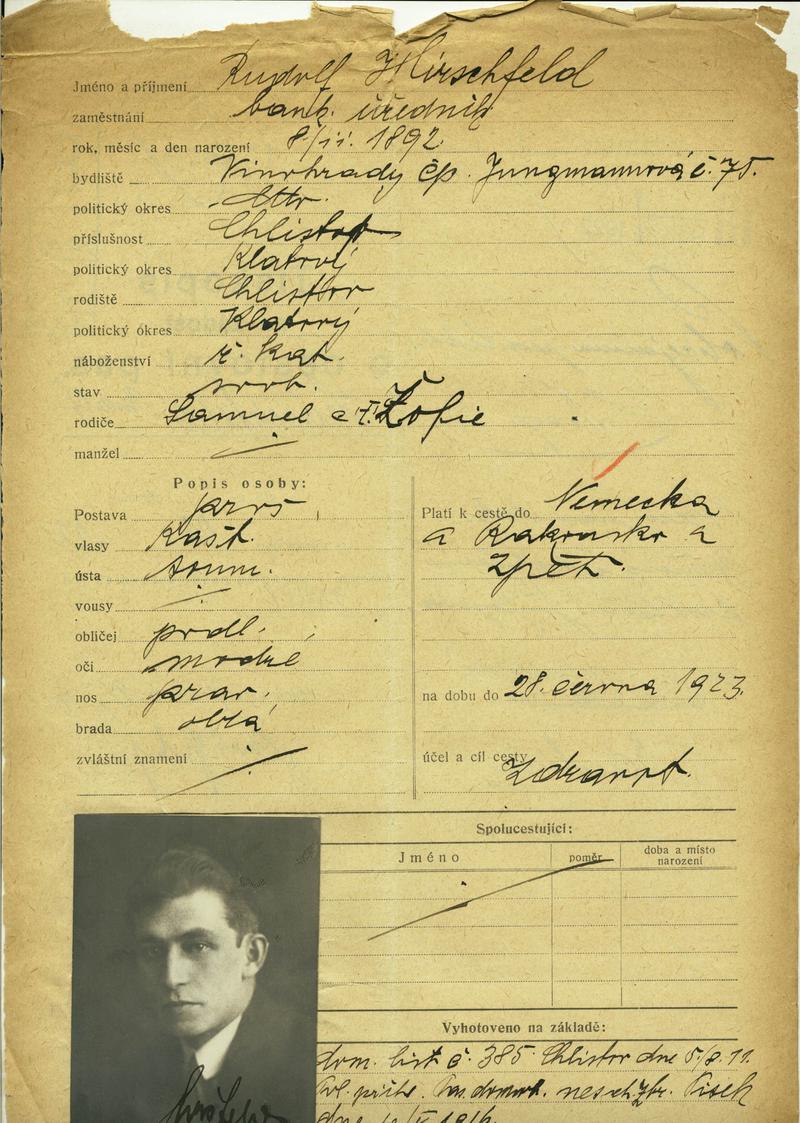 Jméno a příjmení Rudolf Hirschfeld
zaměstnání bank. úředník
rok, měsíc a den narození 8/11. 1892
bydliště Vinohrady čp. Jungmannová č. 75.
politický okres dtto.
příslušnost Chlistov
politický okres Klatový
rodiště Chlistov
politický okres Klatový
náboženství ř. kat.
stav svob.
rodiče Samuel a Žofie
manžel
Popis osoby:
Postava pros
vlasy kašt.
ústa soum.
vousy
obličej podl.
oči modré
nos prav.
brada oblá
zvláštní znamení
Platí k cestě do Německa
a Rakouska a
zpět.
na dobu do 28. června 1923.
účel a cíl cesty zdravot.
Spolucestující:
Jméno
poměr
doba a místo
narození
Vyhotoveno na základě:
dom. list č. 385 Chlistov dne 5/8. 11.
Písek
dne